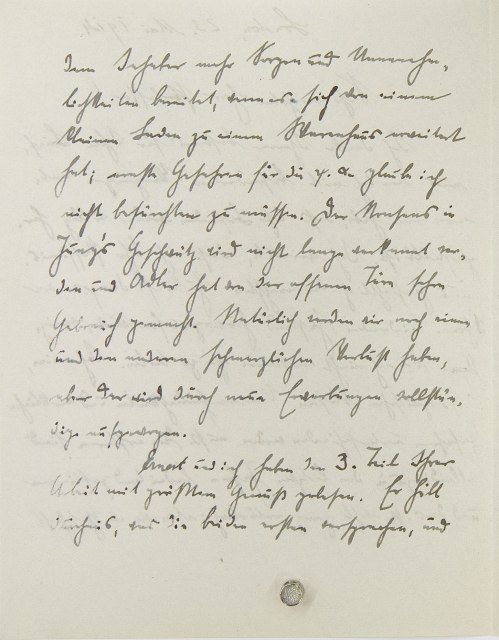 dem Inhaber mehr Sorgen und Unannehm-
lichkeiten bereitet, wenn es sich von einem
kleinen Laden zu einem Warenhaus erweitert
hat; ernste Gefahren für die ψ. α. glaube ich
nicht befürchten zu müssen. Der Nonsens in
Jung's Geschwätz wird nicht lange verkannt wer-
den und Adler hat von der offenen Türe schon
Gebrauch gemacht. Natürlich werden wir noch einen
und den anderen schmerzlichen Verlust haben,
aber der wird durch neue Erwerbungen vollstän-
dig aufgewogen.
Ernest und ich haben den 3. Teil Ihrer
Arbeit mit größtem Genuß gelesen. Er hält
durchaus, was die beiden ersten versprechen, und